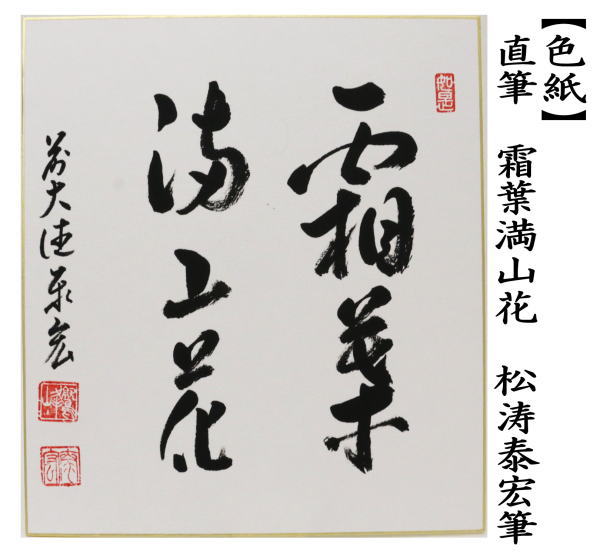 【色紙】
直筆 霜葉満山花 松涛泰宏筆
霜葉
満山花
前大徳泰宏